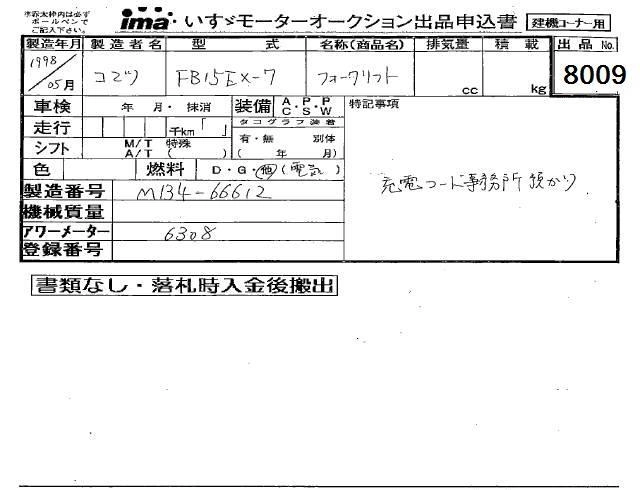 ※赤太枠内は必ず
ボールペンで
ご記入下さい。
ima・いすゞモーターオークション出品申込書
建機コーナー用
製造年月 製造者名 型 式 名称(商品名) 排気量 積載 出品No.
1998/05月 コマツ FB15EX-7 フォークリフト cc kg 8009
車検 年 月・抹消 装備 A・P・P C・S・W 特記事項
走行 千km「 」 タコグラフ装着
シフト M/T 特殊 A/T ( ) 有・無 別体 ( 年 月)
色 燃料 D・G・他(電気)
充電コード事務所預かり
製造番号 M134-66612
機械質量
アワーメーター 6308
登録番号
書類なし・落札時入金後搬出